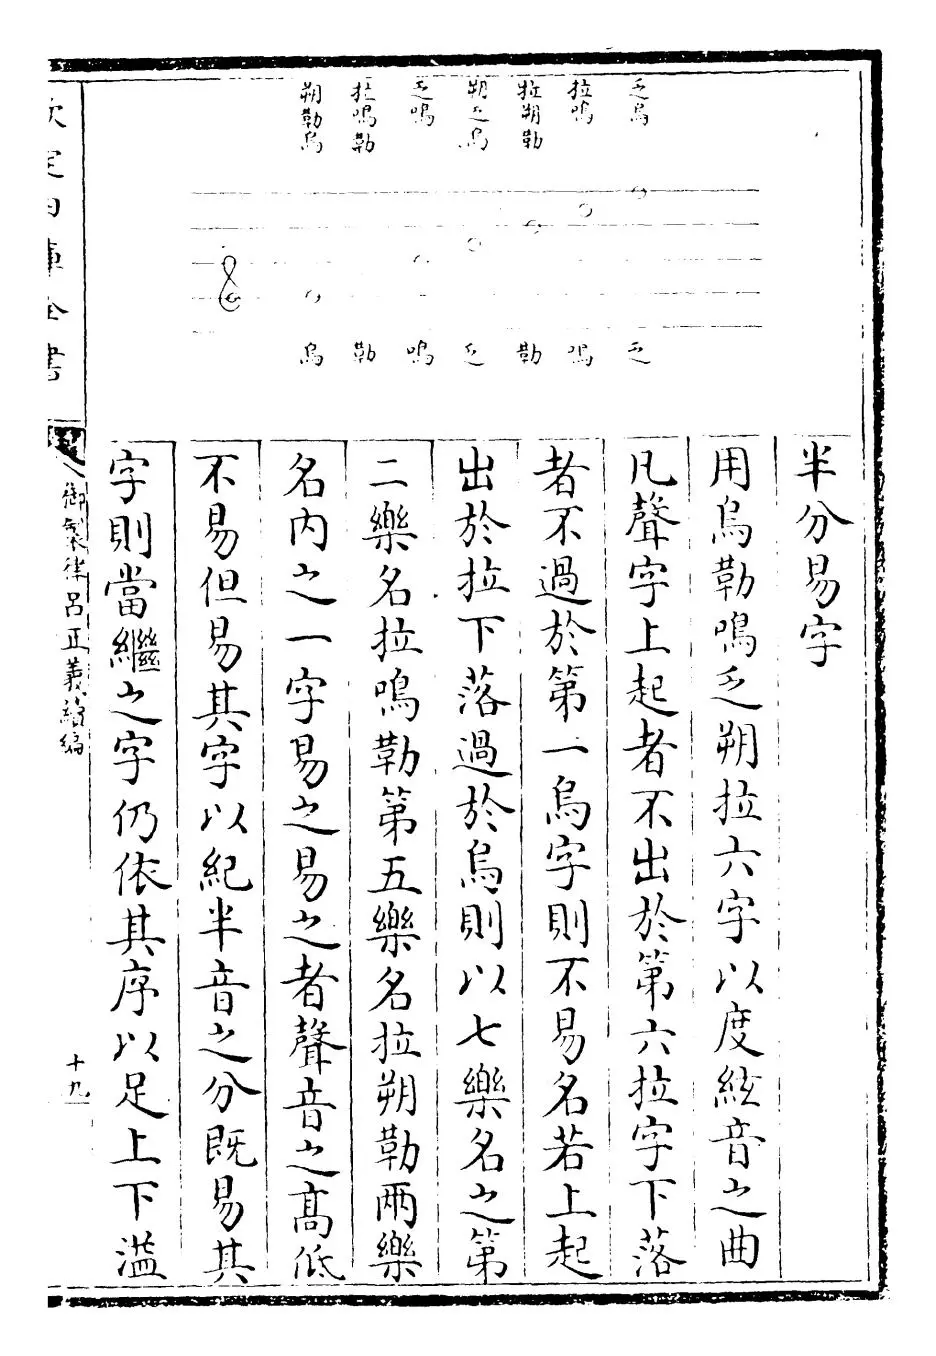 乏烏
拉鳴
拉朔勒
朔乏烏
乏鳴
拉鳴勒
朔勒烏
乏
鳴
勒
乏
鳴
勒
烏
半分易字
用烏勒鳴乏朔拉六字以度絃音之曲
凡聲字上起者不出於第六拉字下落
者不過於第一烏字則不易名若上起
出於拉下落過於烏則以七樂名之第
二樂名拉鳴勒第五樂名拉朔勒兩樂
名內之一字易之易之者聲音之高低
不易但易其字以紀半音之分既易其
字則當繼之字仍依其序以足上下溢
欽定四庫全書
御製律呂正義續編
十九